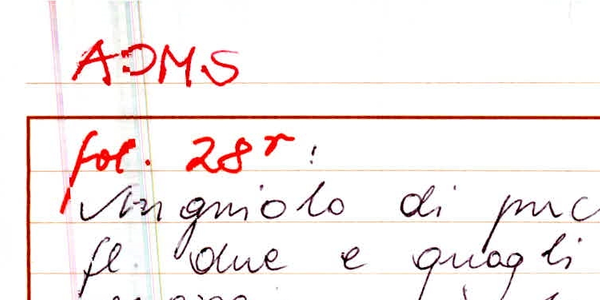 ADMS
fol. 28r:
Angniolo di pucc
fl. due e quagli